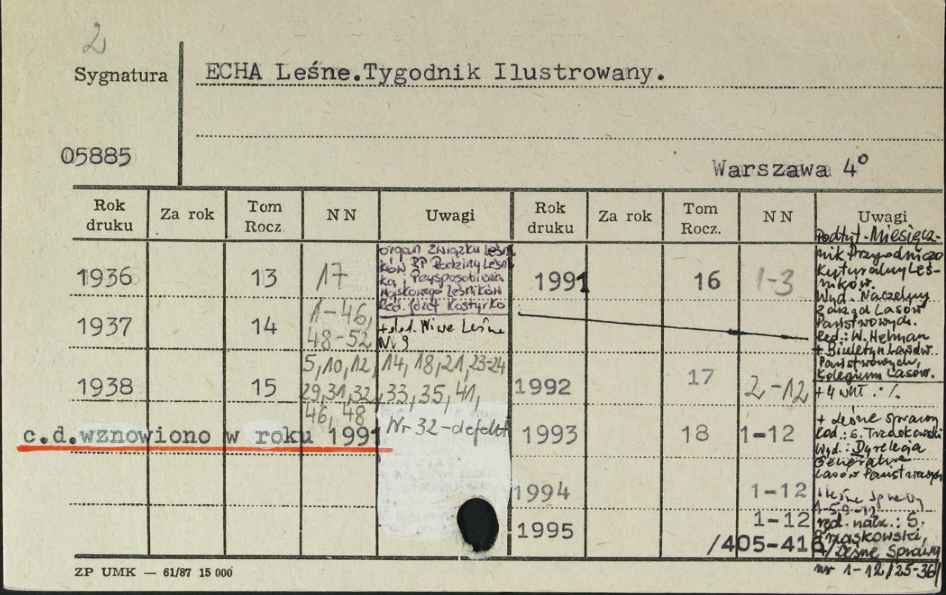 2
Sygnatura
ECHA Leśne.Tygodnik Ilustrowany.
05885
Warszawa 4°
Rok druku Za rok Tom Rocz. N N Uwagi Rok druku Za rok Tom Rocz. N N Uwagi
1936 13 17
organ Związku Leśni
ków RP Rodziny Leśni
ka, Przysposobienia
Wojskowego Leśników
Red. Józef Kostyrko
1937 14 1-46,
48-52
+ dod. Wive Leśne
Nr 9
1938 15 5,10,12, 14, 18, 21, 23-24
29,31,32, 33, 35, 41,
46, 48
Nr 32-defekt
c.d.wznowiono w roku 1991
1991 16 1-3
Podtyt.-Miesięcz-
nik Przyrodniczo
Kulturalny Leś-
ników.
Wyd. Naczelny
Zarząd Lasów
Państwowych.
Red.: W. Heman
+ Biuletyn Lasów
Państwowych,
Kolegium Lasów.
1992 17 2-12
+ 4 wkł. : %
1993 18 1-12
+ Leśne sprawy
Red.: S. Trzaskowski
Wyd.: Dyrekcja
Generalna
Lasów Państwowych
1994 1-12
Leśne Sprawy
1995 1-12
/405-416
red. nacz.: S.
Trzaskowski,
+/Leśne Sprawy
nr 1-12/25-36/
ZP UMK — 61/87 15 000